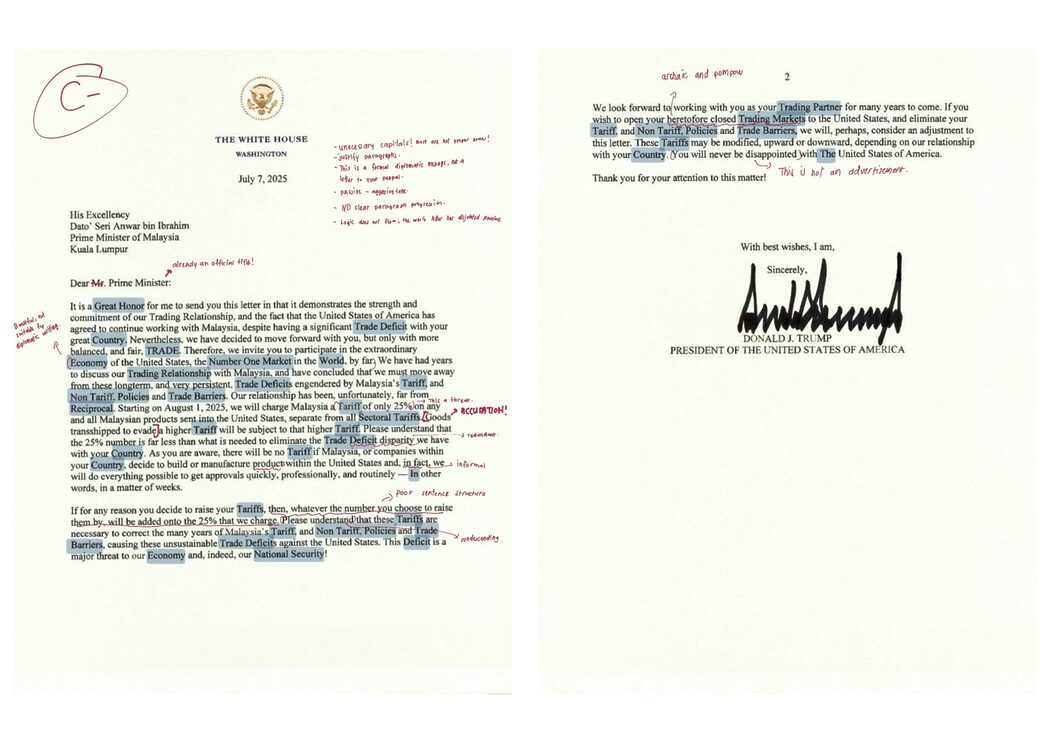 C-
THE WHITE HOUSE
WASHINGTON
July 7, 2025
- unnecessary capitals! most are not proper nouns!
- justify paragraphs.
- This is a formal diplomatic message, not a
letter to your penpal.
- passive - aggressive tone.
- NO clear paragraph progression.
- Logic does not flow; the whole letter has disjointed
His Excellency
Dato’ Seri Anwar bin Ibrahim
Prime Minister of Malaysia
Kuala Lumpur
already an official title!
Dear Mr. Prime Minister:
Boastful, not
suitable for
diplomatic writing.
It is a Great Honor for me to send you this letter in that it demonstrates the strength and
commitment of our Trading Relationship, and the fact that the United States of America has
agreed to continue working with Malaysia, despite having a significant Trade Deficit with your
great Country. Nevertheless, we have decided to move forward with you, but only with more
balanced, and fair, TRADE. Therefore, we invite you to participate in the extraordinary
Economy of the United States, the Number One Market in the World, by far. We have had years
to discuss our Trading Relationship with Malaysia, and have concluded that we must move away
from these longterm, and very persistent, Trade Deficits engendered by Malaysia’s Tariff, and
Non Tariff, Policies and Trade Barriers. Our relationship has been, unfortunately, far from
this a threat.
Reciprocal. Starting on August 1, 2025, we will charge Malaysia a Tariff of only 25% on any
ACCUSATION!
and all Malaysian products sent into the United States, separate from all Sectoral Tariffs. Goods
transshipped to evade a higher Tariff will be subject to that higher Tariff. Please understand that
the 25% number is far less than what is needed to eliminate the Trade Deficit disparity we have
redundant.
with your Country. As you are aware, there will be no Tariff if Malaysia, or companies within
your Country, decide to build or manufacture product within the United States and, in fact, we
informal
will do everything possible to get approvals quickly, professionally, and routinely — In other
words, in a matter of weeks.
poor sentence structure
If for any reason you decide to raise your Tariffs, then, whatever the number you choose to raise
them by, will be added onto the 25% that we charge. Please understand that these Tariffs are
necessary to correct the many years of Malaysia’s Tariff, and Non Tariff, Policies and Trade
Barriers, causing these unsustainable Trade Deficits against the United States. This Deficit is a
condescending
major threat to our Economy and, indeed, our National Security!
archaic and pompous
2
We look forward to working with you as your Trading Partner for many years to come. If you
wish to open your heretofore closed Trading Markets to the United States, and eliminate your
Tariff, and Non Tariff, Policies and Trade Barriers, we will, perhaps, consider an adjustment to
this letter. These Tariffs may be modified, upward or downward, depending on our relationship
with your Country. You will never be disappointed with The United States of America.
This is not an advertisement.
Thank you for your attention to this matter!
With best wishes, I am,
Sincerely,
DONALD J. TRUMP
PRESIDENT OF THE UNITED STATES OF AMERICA